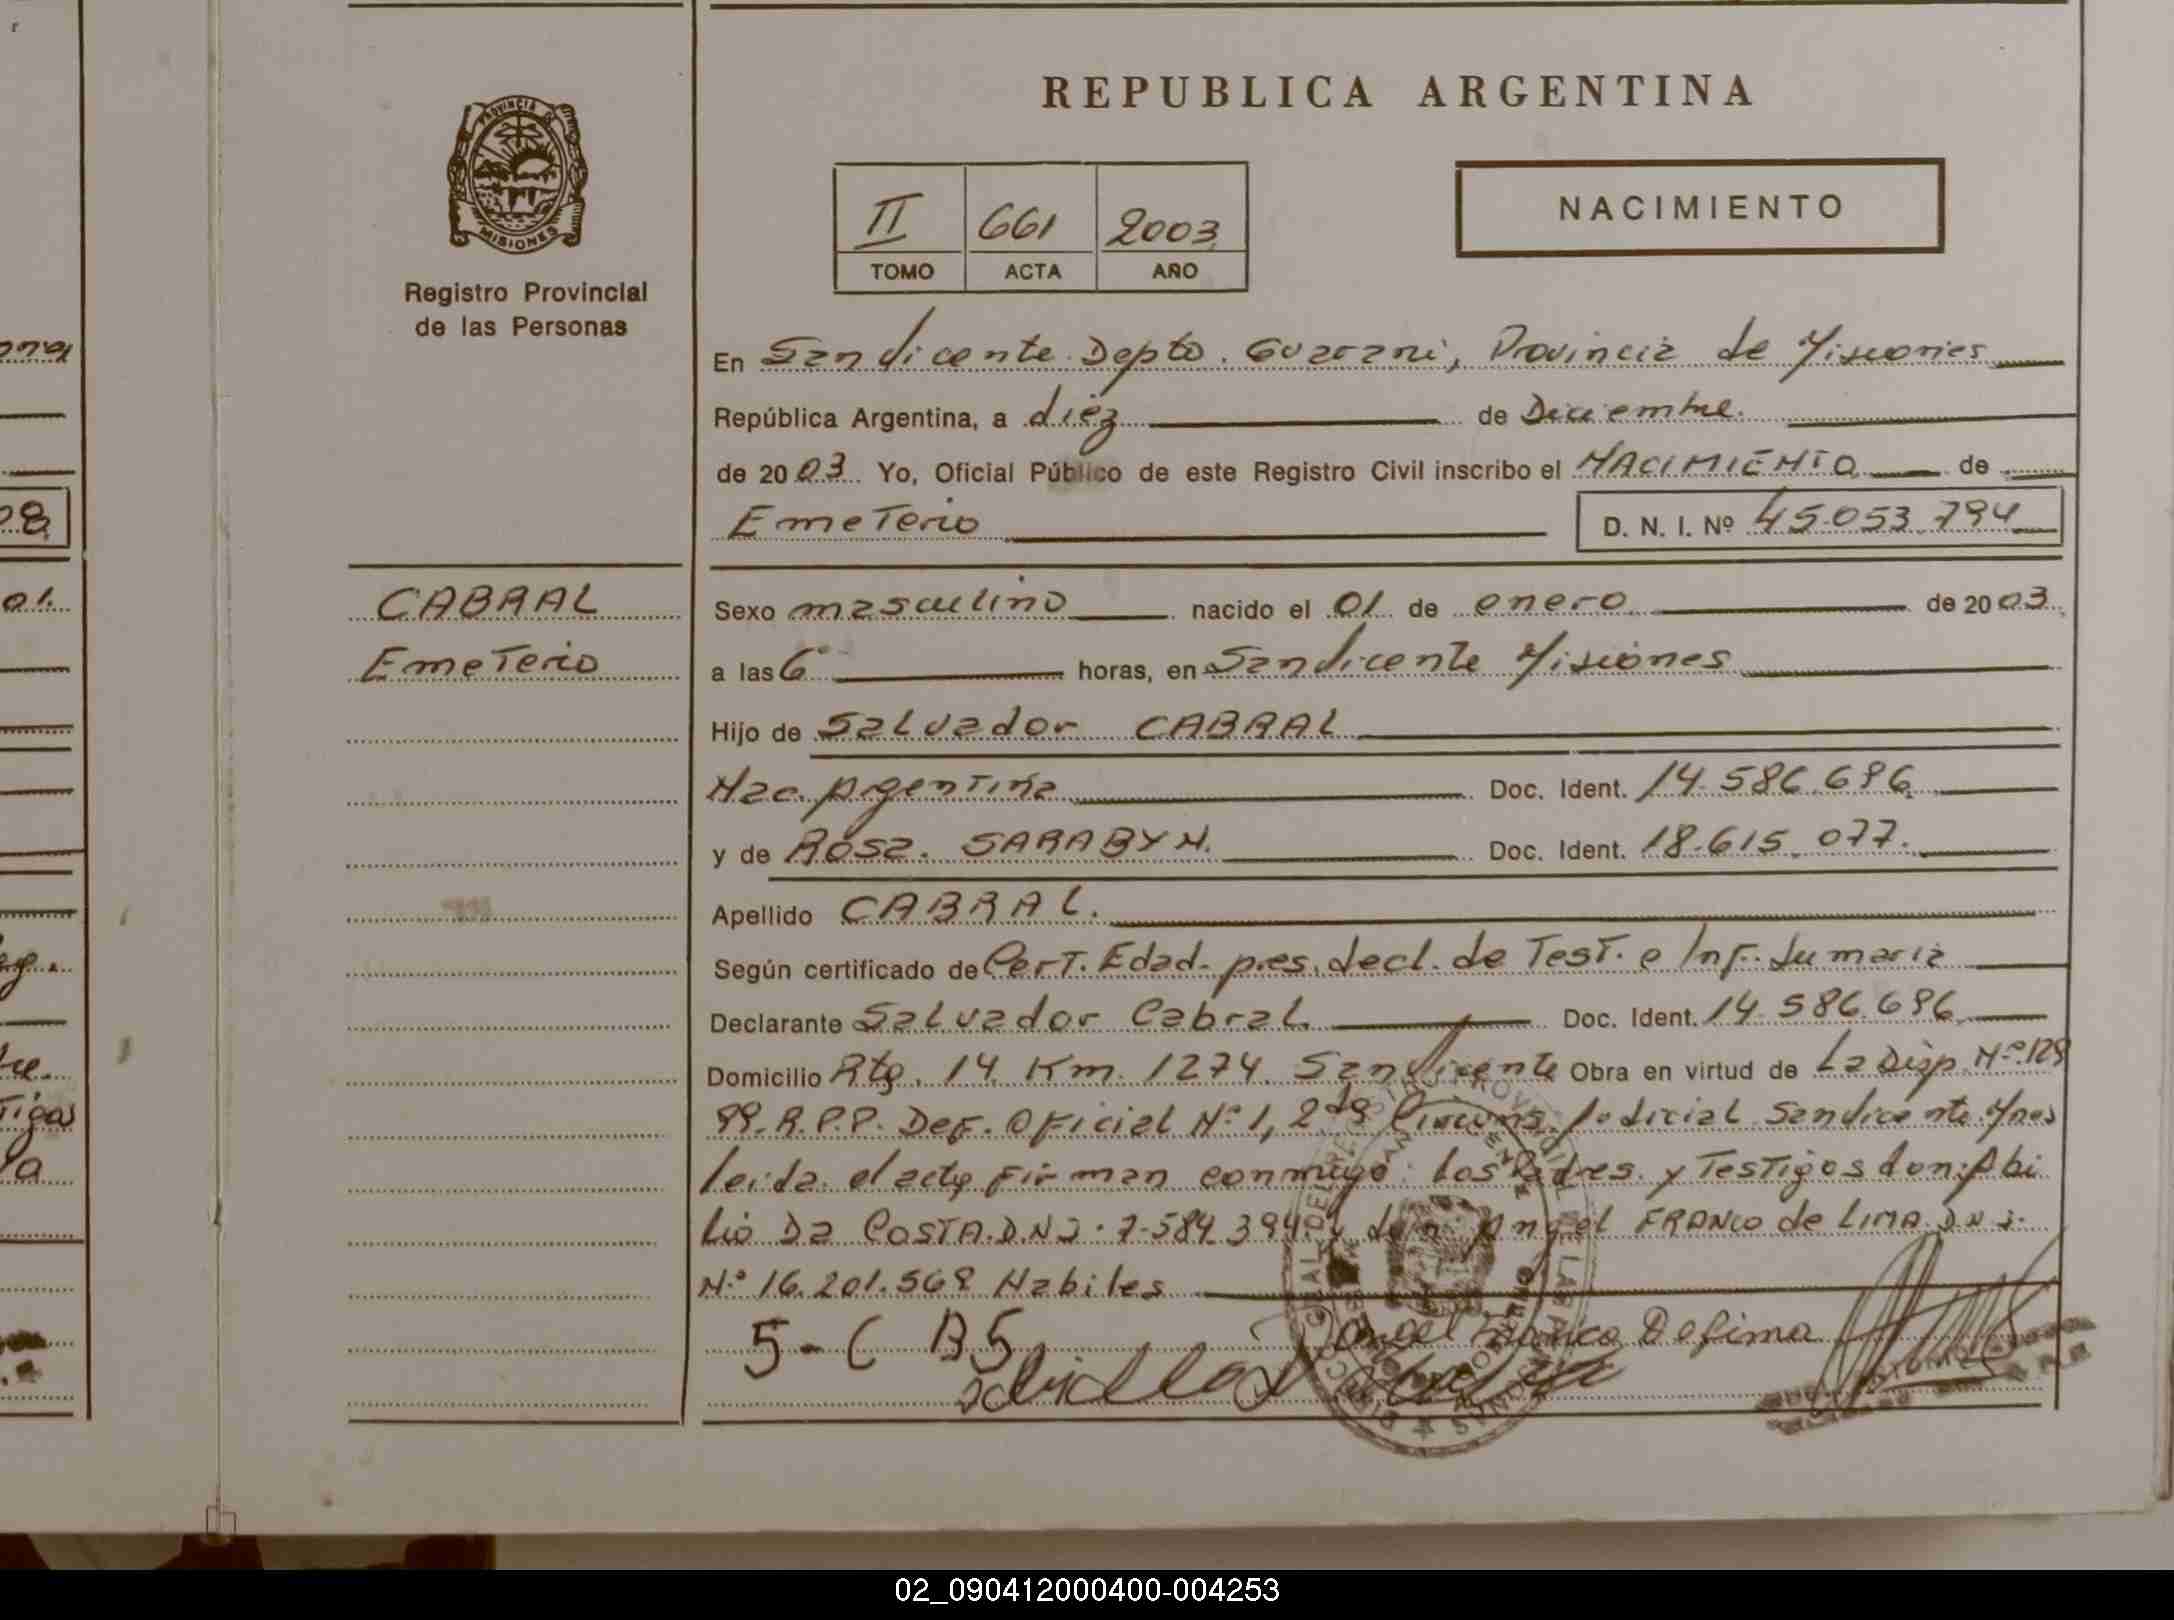 REPUBLICA ARGENTINA
PROVINCIA DE
MISIONES
Registro Provincial
de las Personas
II 661 2003
TOMO ACTA AÑO
NACIMIENTO
En San Vicente Depto. Guarani, Provincia de Misiones
República Argentina, a diez de Diciembre.
de 2003 Yo, Oficial Público de este Registro Civil inscribo el NACIMIENTO de
Emeterio D. N. I. Nº 45.053.794
CABRAL
Emeterio
Sexo masculino nacido el 01 de enero de 2003.
a las 6 horas, en San Vicente Misiones
Hijo de Salvador CABRAL
Nac. Argentina Doc. Ident. 14.586.696
y de Rosa. SARABYN. Doc. Ident. 18.615.077.
Apellido CABRAL.
Según certificado de Cert. Edad. pres. decl. de Test. e Inf. Sumaria
Declarante Salvador Cabral Doc. Ident. 14.586.696
Domicilio Rta. 14 Km. 1274. San Vicente Obra en virtud de La Disp. Nº 128
99. R.P.P. Def. Oficial Nº 1, 2da Circuns. Judicial San Vicente Mnes
leida el acta firman conmigo: los Padres. y Testigos don: Abi
lio Da COSTA. D.N.I. 7.584.394 y don Angel FRANCO de LIMA. D.N.I.
Nº 16.201.569 Habiles
5-C B5
Angel Franco Defima
02_090412000400-004253